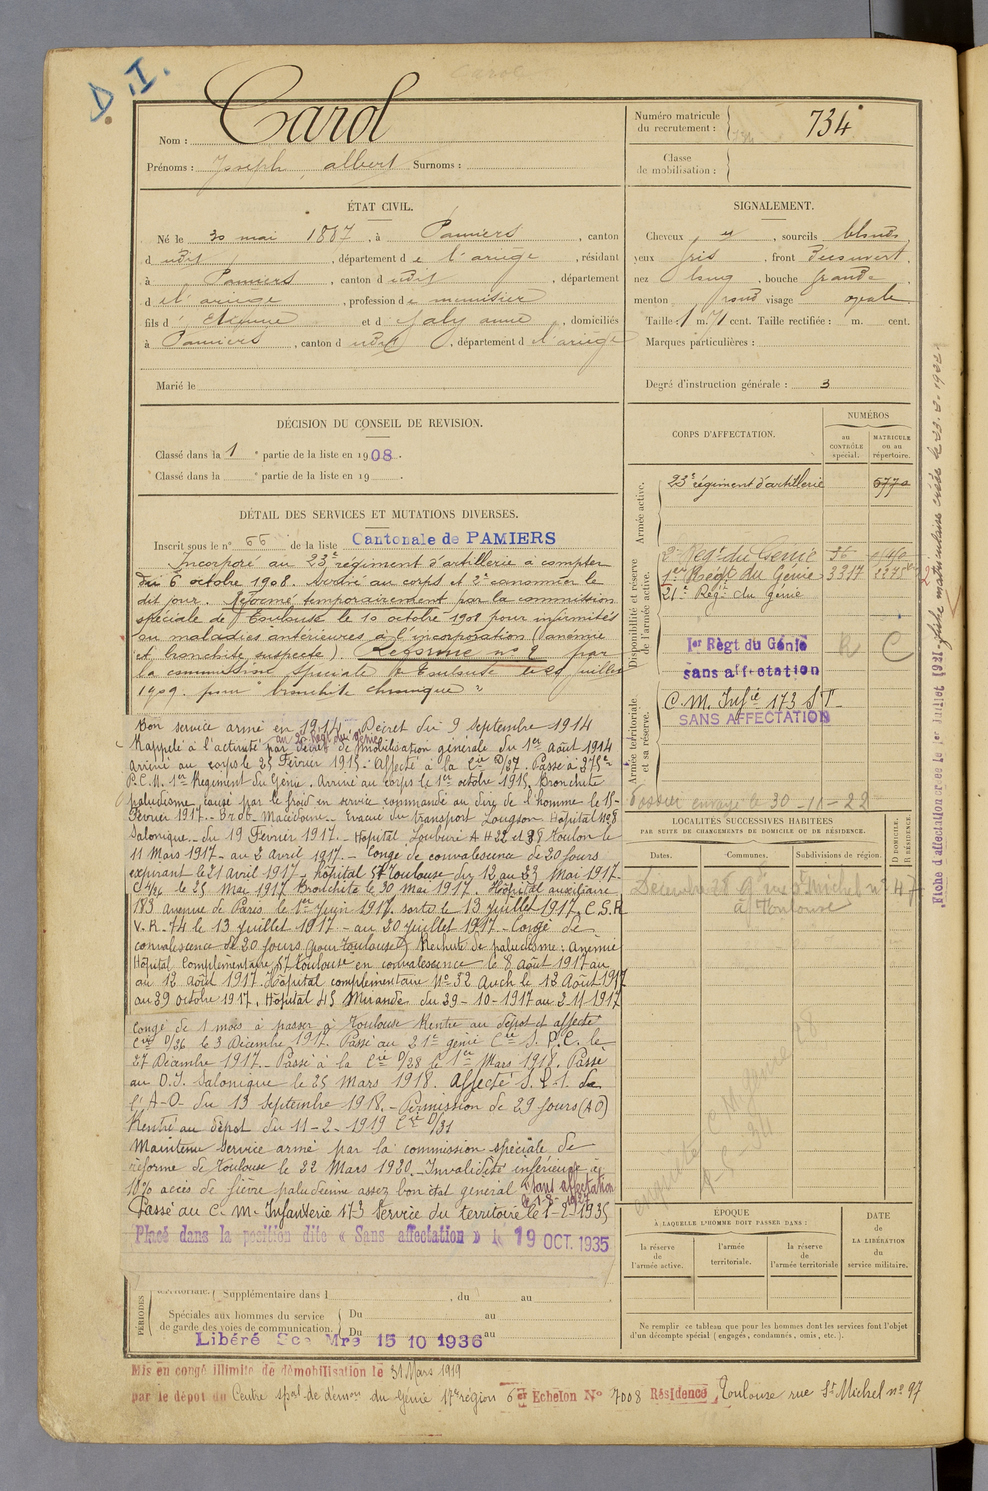 D.I.
Carol
Nom : Carol
Prénoms : Joseph, albert Surnoms :
Numéro matricule
du recrutement : 734
Classe
de mobilisation :
ÉTAT CIVIL.
Né le 30 mai 1887, à Pamiers, canton
dudit, département de l'ariège, résidant
à Pamiers, canton dudit, département
de l'ariège, profession de menuisier
fils d' Etienne et d Jaly anne, domiciliés
à Pamiers, canton dudit, département de l'ariège
Marié le
SIGNALEMENT.
Cheveux et, sourcils blonds,
yeux gris, front découvert,
nez long, bouche grande
menton rond visage ovale
Taille : 1 m. 71 cent. Taille rectifiée : m. cent.
Marques particulières :
Degré d'instruction générale : 3
DÉCISION DU CONSEIL DE REVISION.
Classé dans la 1e partie de la liste en 1908.
Classé dans la e partie de la liste en 19 .
DÉTAIL DES SERVICES ET MUTATIONS DIVERSES.
Inscrit sous le n° 66 de la liste Cantonale de PAMIERS
Incorporé au 23e régiment d'artillerie à compter
du 6 octobre 1908. Arrivé au corps et 2e canonnier le
dit jour. Réformé temporairement par la commission
spéciale de Toulouse le 10 octobre 1908 pour infirmités
ou maladies antérieures à l'incorporation (anémie
et bronchite suspecte). Réforme n° 2 par
la commission spéciale de Toulouse le 29 juillet
1909. pour "bronchite chronique"
Bon service armé en 1914. Décret du 9 septembre 1914
au 2e Régt du génie
Rappelé à l'activité par Décret de mobilisation générale du 1er Août 1914
Arrivé au corps le 25 Février 1915. Affecté à la Cie D/27. Passé à 275e
P.C.M. 1er Régiment du Génie. Arrivé au corps le 1er octobre 1915. Bronchite
paludisme, causé par le froid en service commandé au dire de l'homme le 15-
Février 1917. - Brod - Macédoine. - Evacué du transport Lougson Hôpital N°8
Salonique. - du 19 Février 1917. - Hôpital Loubière A H 22 et 28 Toulon le
11 Mars 1917 - au 2 Avril 1917. - Congé de convalescence de 20 jours
expirant le 21 avril 1917 - hôpital 57 Toulouse du 18 au 23 Mai 1917 -
le 25 Mai 1917 Bronchite le 30 Mai 1917. Hôpital auxiliaire
183 avenue de Paris le 1er Juin 1917. sorti le 13 juillet 1917. C.S.R
V.R. 74 le 13 juillet 1917 - au 20 juillet 1917 - Congé de -
convalescence de 20 jours (pour Toulouse) Rechute de paludisme : anémie
Hôpital Complémentaire 57 Toulouse en convalescence le 8 Août 1917 au
au 12 Août 1917. Hôpital complémentaire N° 52 Auch le 12 Août 1917
au 29 octobre 1917. Hôpital 45 Mirande du 29-10-1917 au 2-11-1917
Congé de 1 mois à passer à Toulouse Rentré au dépôt et affecté
Cie D/26 le 3 Décembre 1917. Passé au 21e génie Cie S.P.C. le
27 Décembre 1917. - Passé à la Cie D/28 le 1er Mars 1918. Passé
au D.I. Salonique le 25 Mars 1918. Affecté S.R.1. de
l'A-O- du 13 Septembre 1918. - Permission de 29 jours (A O)
Rentré au dépôt du 11-2-1919 Cie D/31
Maintenu Service armé par la commission spéciale de
réforme de Toulouse le 22 Mars 1920. - Invalidité inférieure à
10% accès de fièvre paludéenne assez bon état général Sans affectation
le 1-8-1927
Passé au C. M. Infanterie 173 Service du territoire le 1-2-1935
Placé dans la position dite « Sans affectation » le 19 OCT. 1935
CORPS D'AFFECTATION.
NUMÉROS
au
CONTRÔLE
spécial.
MATRICULE
ou au
répertoire.
Armée active.
23e régiment d'artillerie 6770
Disponibilité et réserve
de l'armée active.
2e Régt du Génie
1er Régt du Génie 3317
21e Régt du génie
1er Règt du Génie R C
sans affectation
Armée territoriale
et sa réserve.
C. M. Infie 173 S T
SANS AFFECTATION
Dossier envoyé le 30-11-22
LOCALITÉS SUCCESSIVES HABITÉES
PAR SUITE DE CHANGEMENTS DE DOMICILE OU DE RÉSIDENCE.
Dates. Communes. Subdivisions de région.
D DOMICILE.
R RÉSIDENCE.
Décembre 28 rue St Michel n° 47
à Toulouse
ÉPOQUE
À LAQUELLE L'HOMME DOIT PASSER DANS :
la réserve
de
l'armée active.
l'armée
territoriale.
la réserve
de
l'armée territoriale
DATE
de
LA LIBÉRATION
du
service militaire.
Ne remplir ce tableau que pour les hommes dont les services font l'objet
d'un décompte spécial (engagés, condamnés, omis, etc.).
PÉRIODES
Supplémentaire dans l , du au
Spéciales aux hommes du service
de garde des voies de communication.
Du au
Du au
Libéré Sce Mre 15 10 1936
Mis en congé illimité de démobilisation le 31 Mars 1919
par le dépôt du Centre spal de démon du Génie 17e région 6e Echelon N° 7008 Résidence, Toulouse rue St Michel n° 97
Fiche d'affectation créée le 1er Juillet 1921